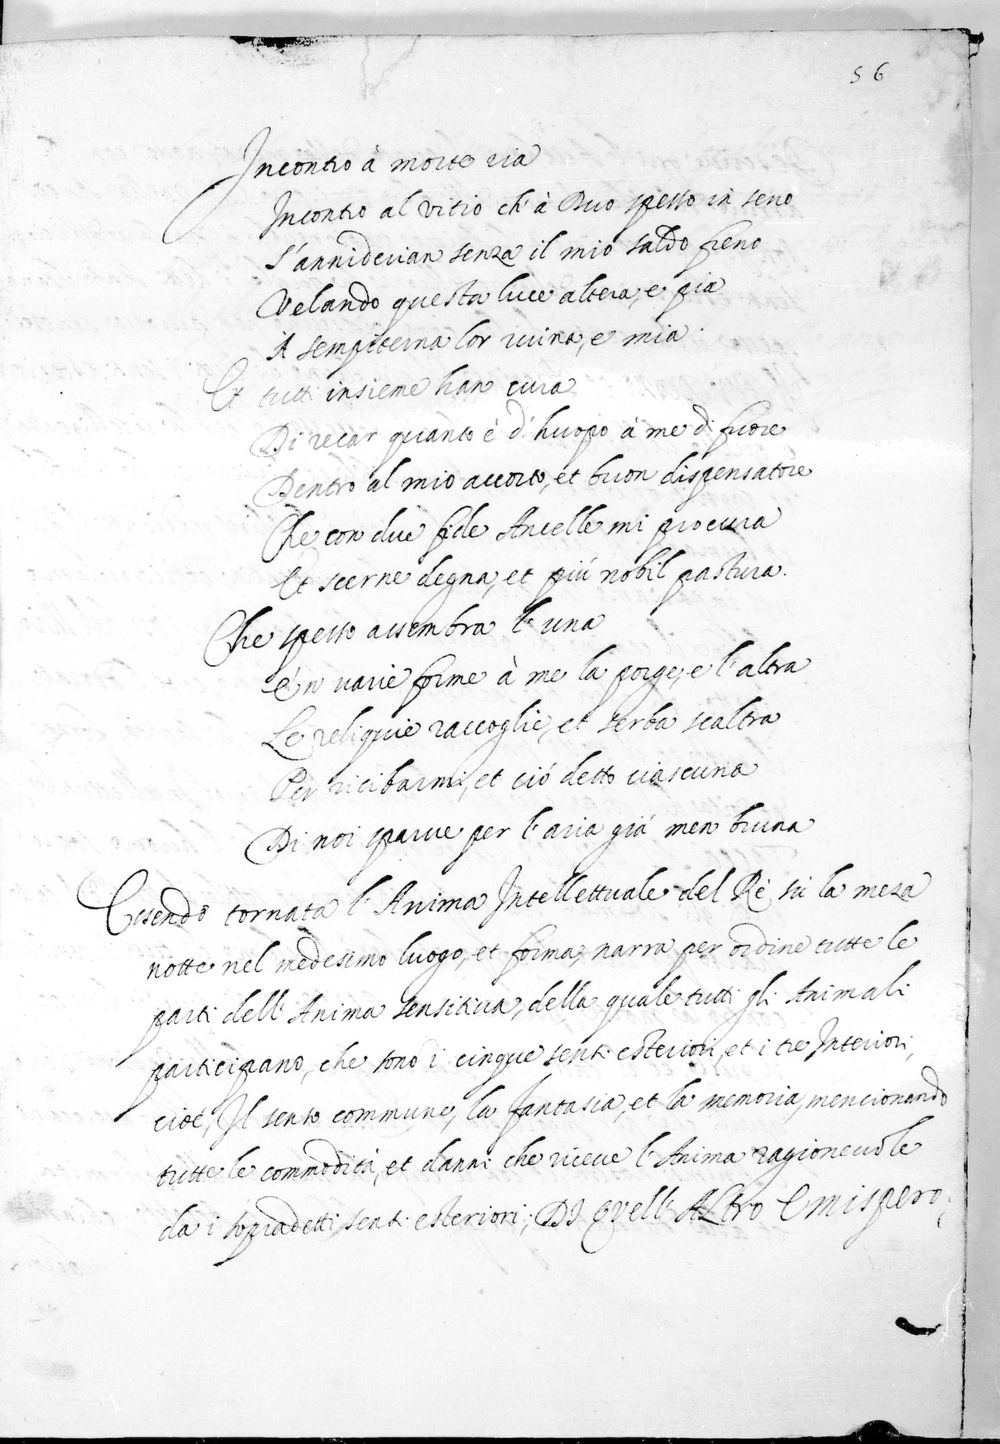 56
Incontro à morte ria
Incontro al vitio ch'à Duo spesso in seno
S'anniderian senza il mio saldo freno
Velando questa luce altera, e pia
A sempiterna lor ruina, e mia.
Et tutti insieme han cura
Di recar quanto è d'huopo à me di fuore
Dentro al mio accorto, et buon dispensatore
Che con due fide Ancelle mi procura
Et scerne degna, et più nobil pastura.
Che spesso assembra l'una
E'n varie forme à me la porge, e l'altra
Le reliquie raccoglie, et serba scaltra
Per ricibarmi, et ciò detto ciascuna
Di noi sparue per l'aria già men bruna
Essendo tornata l'Anima Intellettuale del Rè sù la meza
notte nel medesimo luogo, et forma, narra per ordine tutte le
parti dell'Anima sensitiua, della quale tutti gli Animali
participano, che sono i cinque sensi esteriori, et i tre Interiori,
cioè, Il senso commune, la fantasia, et la memoria, mencionando
tutte le commodità, et danni che riceue l'Anima ragioneuole
da i sopradetti sensi esteriori; DI Quell'ALtro Emispero;